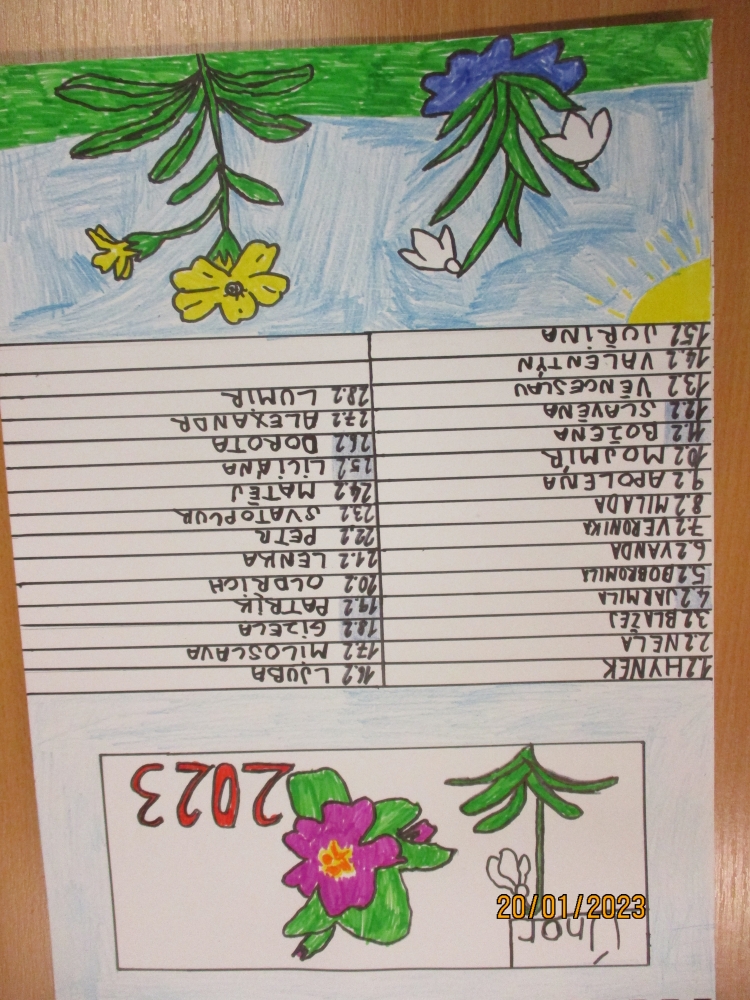 Únor
2023
1.2 HYNEK
2.2 NELA
3.2 BLAŽEJ
4.2 JARMILA
5.2 BOBROMILA
6.2 VANDA
7.2 VERONIKA
8.2 MILADA
9.2 APOLENA
10.2 MOJMÍR
11.2 BOŽENA
12.2 SLAVĚNA
13.2 VĚNCESLAV
14.2 VALENTÝN
15.2 JOŘiNA
16.2 LJUBA
17.2 MiLOSLAVA
18.2 GiZELA
19.2 PATRiK
20.2 OLDŘiCH
21.2 LENKA
22.2 PETR
23.2 SVATOPLUK
24.2 MATĚJ
25.2 LiLiANA
26.2 DOROTA
27.2 ALEXANDR
28.2 LUMíR
20/01/2023